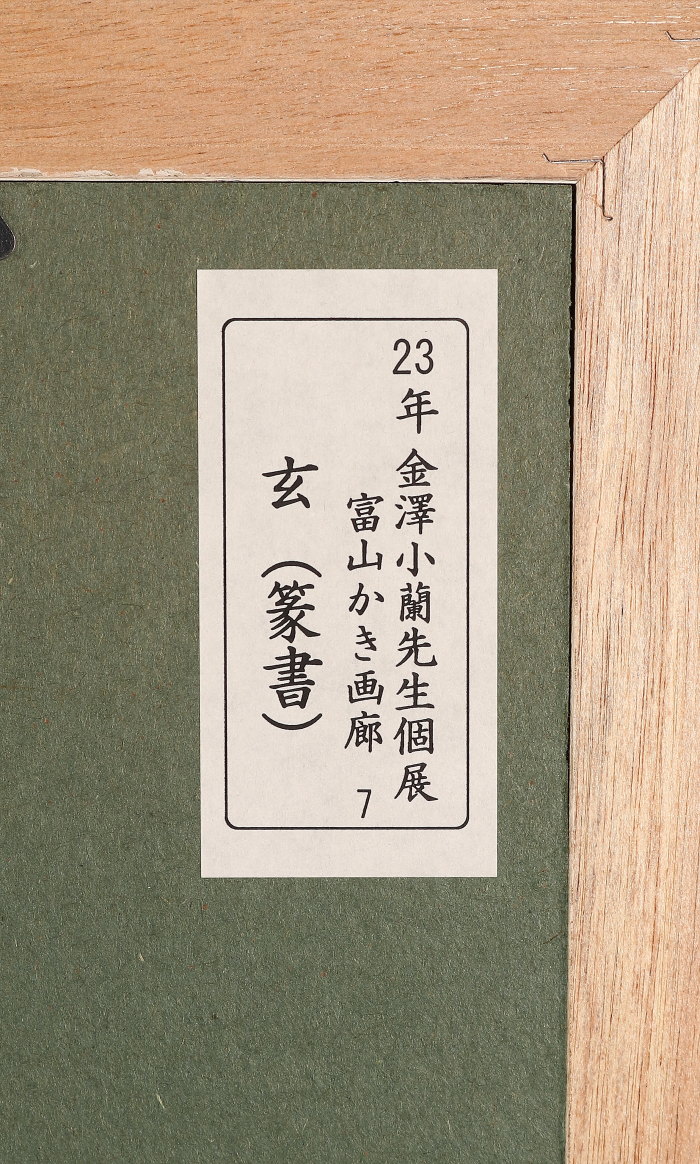 23年 金澤小蘭先生個展
富山かき画廊 7
玄(篆書)